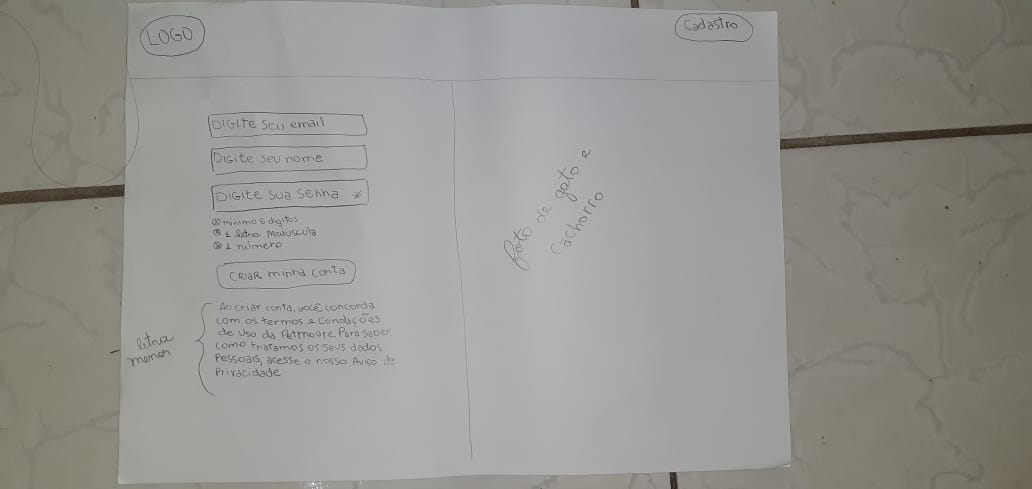 LOGO
Cadastro
DIGITE seu email
DIGITE seu nome
DIGITE sua senha
⊗ mínimo 6 digitos
⊗ 1 letra Maiuscula
⊗ 1 número
CRIAR minha conta
letra
menor
Ao criar conta, você concorda
com os termos e condições
de uso da Petmoure. Para saber
como tratamos os seus dados
Pessoais, acesse o nosso Aviso de
Privacidade.
foto de gato e
cachorro